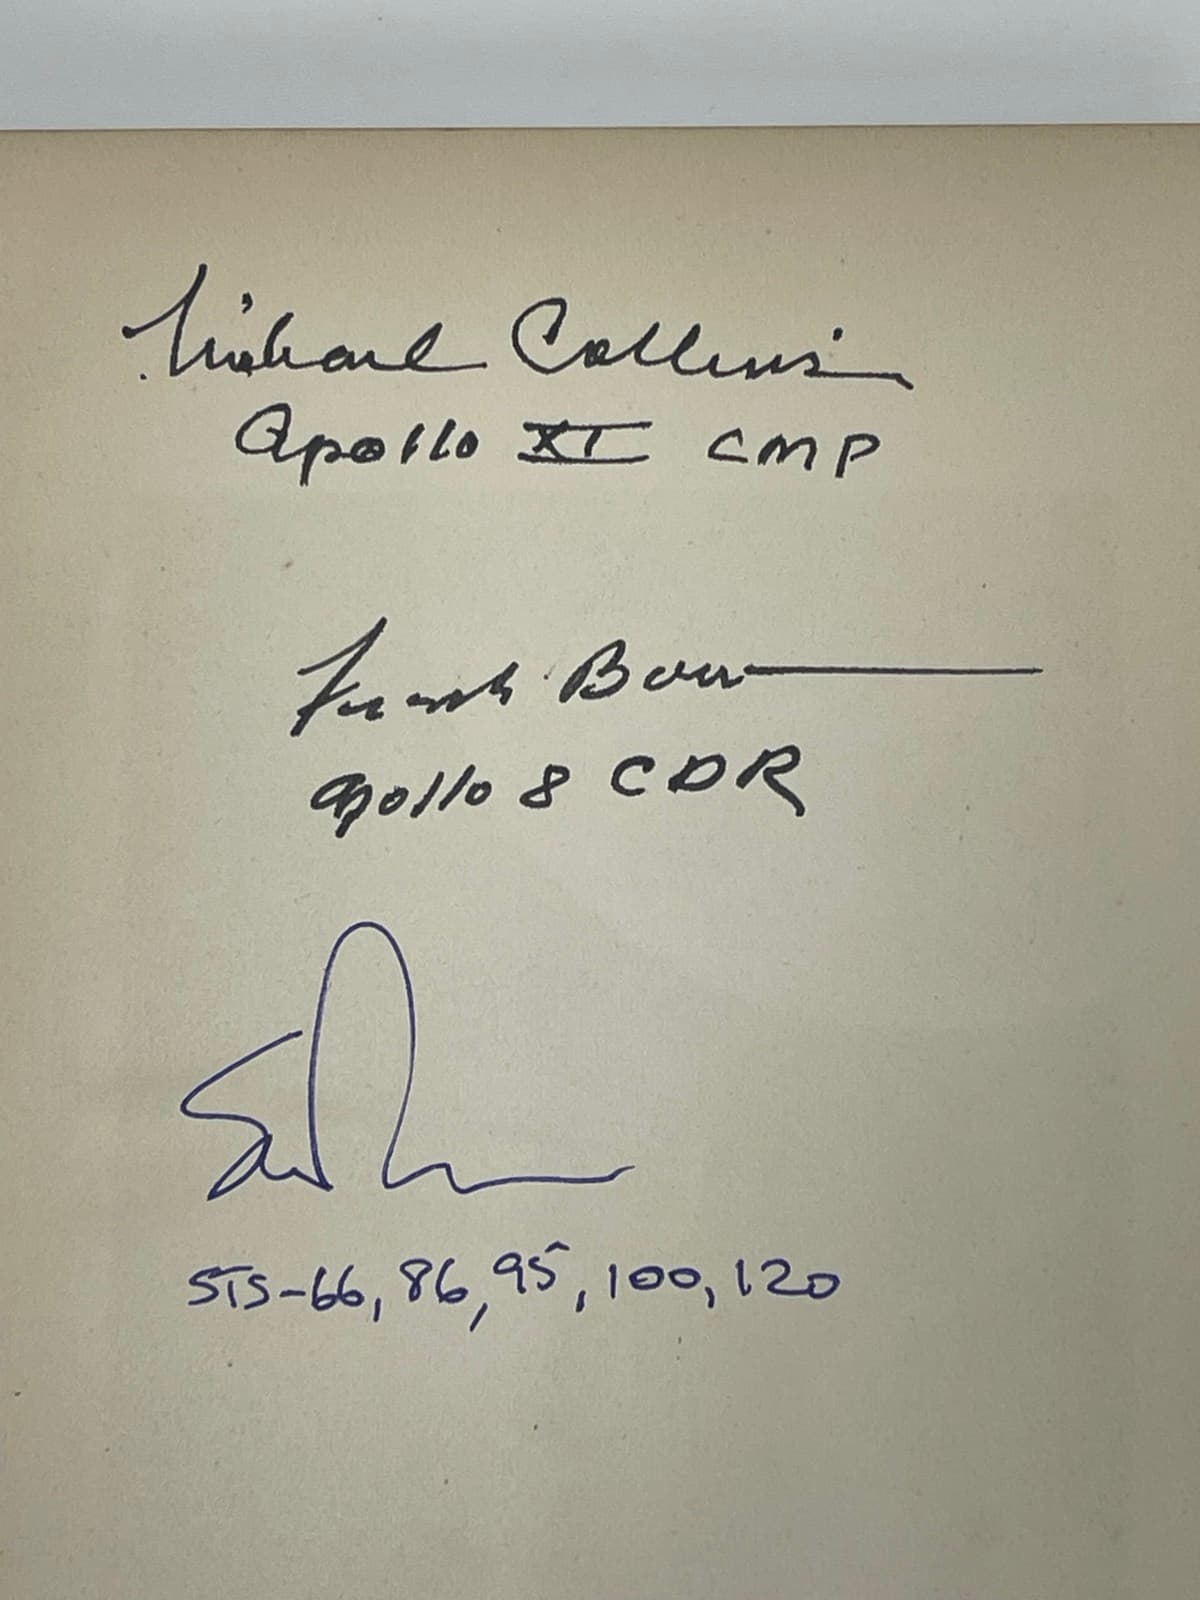 Michael Collins
Apollo XI CMP
Frank Borman
Apollo 8 CDR
STS-66, 86, 95, 100, 120